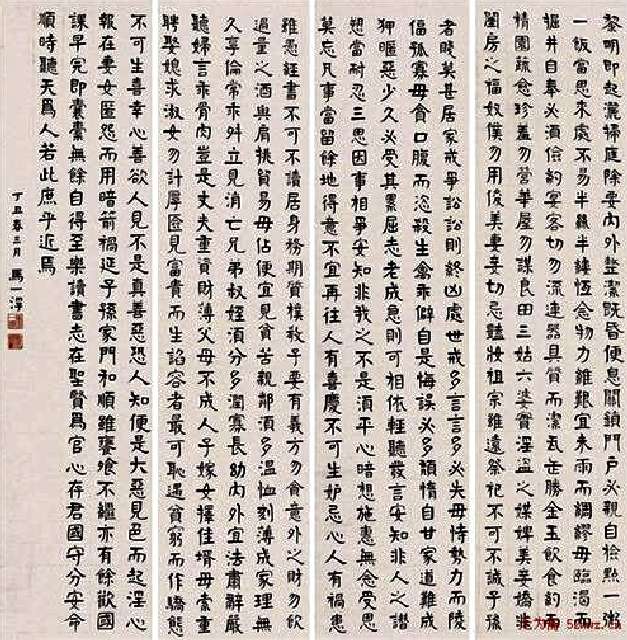 黎明即起灑掃庭除要內外整潔既昏便息關鎖門戶必親自檢點一粥
一飯當思來處不易半絲半縷恆念物力維艱宜未雨而綢繆毋臨渴而
掘井自奉必須儉約宴客切勿流連器具質而潔瓦缶勝金玉飲食約而
精園蔬愈珍羞勿營華屋勿謀良田三姑六婆實淫盜之媒婢美妾嬌非
閨房之福奴僕勿用俊美妻妾切忌豔妝祖宗雖遠祭祀不可不誠子孫
者賤莫甚居家戒毋訟訟則終凶處世戒多言言多必失毋恃勢力而陵
偪孤寡毋貪口腹而恣殺生禽乖僻自是悔誤必多頹惰自甘家道難成
狎暱惡少久必受其累屈志老成急則可相依輕聽發言安知非人之譖
想當耐忍三思因事相爭安知非我之不是須平心暗想施惠無念受恩
莫忘凡事當留餘地得意不宜再往人有喜慶不可生妒忌心人有禍患
雖愚經書不可不讀居身務期質樸教子要有義方勿貪意外之財勿飲
過量之酒與肩挑貿易毋佔便宜見貧苦親鄰須多溫恤刻薄成家理無
久享倫常乖舛立見消亡兄弟叔姪須分多潤寡長幼內外宜法肅辭嚴
聽婦言乖骨肉豈是丈夫重資財薄父母不成人子嫁女擇佳婿毋索重
聘娶媳求淑女勿計厚匳見富貴而生諂容者最可恥遇貧窮而作驕態
不可生喜幸心善欲人見不是真善惡恐人知便是大惡見色而起淫心
報在妻女匿怨而用暗箭禍延子孫家門和順雖饔飧不繼亦有餘歡國
課早完即囊橐無餘自得至樂讀書志在聖賢爲官心存君國守分安命
順時聽天爲人若此庶乎近焉
丁丑春三月 馬一浮